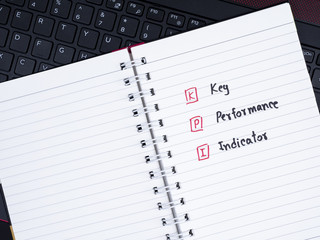 K Key
P Performance
I Indicator